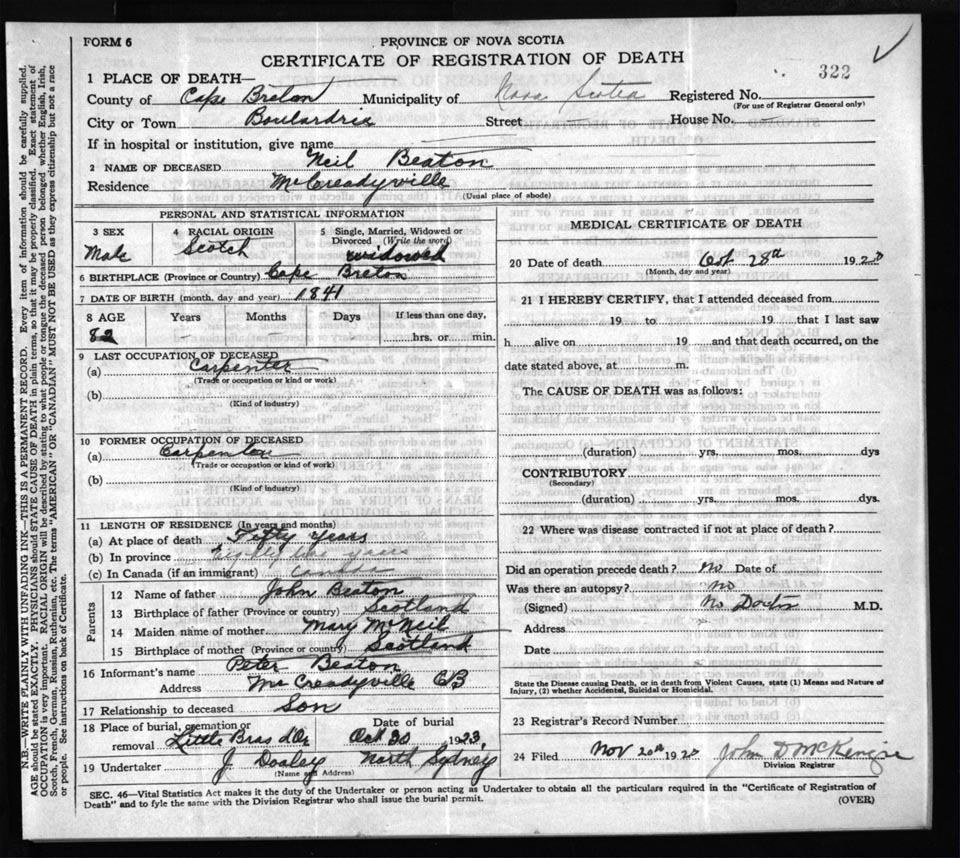 FORM 6
PROVINCE OF NOVA SCOTIA
CERTIFICATE OF REGISTRATION OF DEATH
322
1 PLACE OF DEATH—
County of Cape Breton Municipality of Nova Scotia Registered No.
(For use of Registrar General only)
City or Town Boulardrie Street — House No. —
If in hospital or institution, give name
2 NAME OF DECEASED Neil Beaton
Residence McCreadyville
(Usual place of abode)
PERSONAL AND STATISTICAL INFORMATION
3 SEX Male
4 RACIAL ORIGIN Scotch
5 Single, Married, Widowed or Divorced (Write the word) widowed
6 BIRTHPLACE (Province or Country) Cape Breton
7 DATE OF BIRTH (month, day and year) 1841
8 AGE Years Months Days If less than one day,
82 — — hrs. or min.
9 LAST OCCUPATION OF DECEASED
(a) Carpenter
(Trade or occupation or kind or work)
(b)
(Kind of industry)
10 FORMER OCCUPATION OF DECEASED
(a) Carpenter
(Trade or occupation or kind or work)
(b)
(Kind of industry)
11 LENGTH OF RESIDENCE (In years and months)
(a) At place of death Fifty years
(b) In province Eighty two years
(c) In Canada (if an immigrant) Canada
Parents
12 Name of father John Beaton
13 Birthplace of father (Province or country) Scotland
14 Maiden name of mother Mary McNeil
15 Birthplace of mother (Province or country) Scotland
16 Informant's name Peter Beaton
Address McCreadyville CB
17 Relationship to deceased Son
18 Place of burial, cremation or removal Little Bras d'Or Date of burial Oct 30 1923,
19 Undertaker J. Dooley North Sydney
(Name and Address)
MEDICAL CERTIFICATE OF DEATH
20 Date of death Oct 28th 192
(Month, day and year)
21 I HEREBY CERTIFY, that I attended deceased from
19 to 19 that I last saw
h alive on 19 and that death occurred, on the
date stated above, at m.
The CAUSE OF DEATH was as follows:
(duration) yrs. mos. dys
CONTRIBUTORY
(Secondary)
(duration) yrs. mos. dys.
22 Where was disease contracted if not at place of death?
Did an operation precede death? No Date of
Was there an autopsy? no
(Signed) No Doctor M.D.
Address
Date
State the Disease causing Death, or in death from Violent Causes, state (1) Means and Nature of
Injury, (2) whether Accidental, Suicidal or Homicidal.
23 Registrar's Record Number
24 Filed Nov 20th 192 John D McKenzie
Division Registrar
SEC. 46—Vital Statistics Act makes it the duty of the Undertaker or person acting as Undertaker to obtain all the particulars required in the "Certificate of Registration of
Death" and to fyle the same with the Division Registrar who shall issue the burial permit.
(OVER)
N.B.—WRITE PLAINLY WITH UNFADING INK—THIS IS A PERMANENT RECORD. Every item of information should be carefully supplied.
AGE should be stated EXACTLY. PHYSICIANS should STATE CAUSE OF DEATH in plain terms, so that it may be properly classified. Exact statement of
OCCUPATION is very important. RACIAL ORIGIN will be described by stating to what people or tongue the deceased person belonged whether English, Irish,
Scotch, French, German, Russian, Ruthenian, etc. The terms "AMERICAN" OR "CANADIAN" MUST NOT BE USED as they express citizenship but not a race
or people. See instructions on back of Certificate.